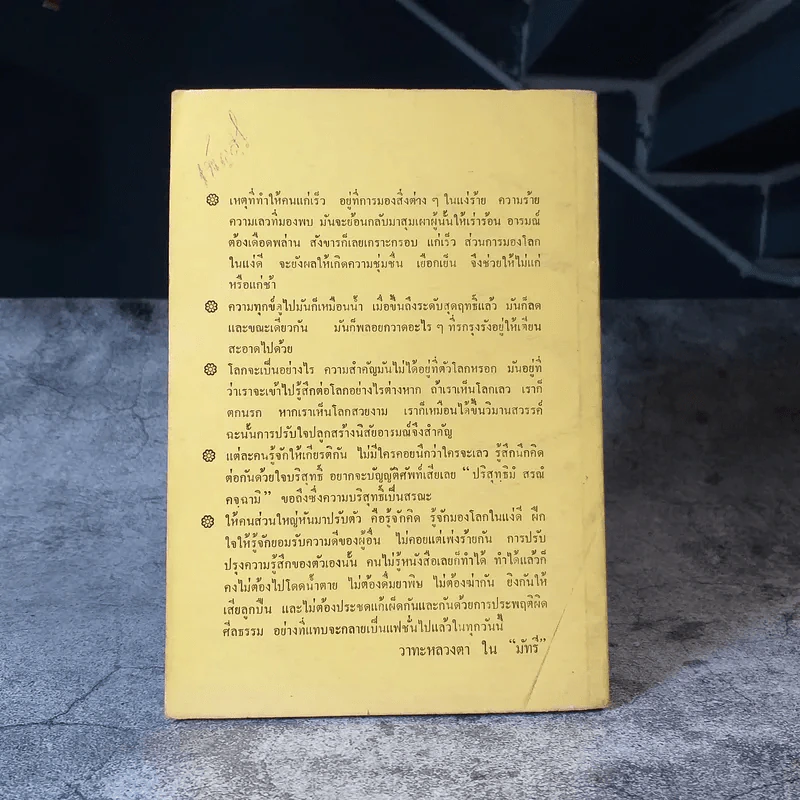 เหตุที่ทำให้คนแก่เร็ว อยู่ที่การมองสิ่งต่าง ๆ ในแง่ร้าย ความร้าย
ความเลวที่มองพบ มันจะย้อนกลับมาสุมเผาผู้นั้นให้เร่าร้อน อารมณ์
ต้องเดือดพล่าน สังขารก็เลยเกราะกรอบ แก่เร็ว ส่วนการมองโลก
ในแง่ดี จะยังผลให้เกิดความชุ่มชื่น เยือกเย็น จึงช่วยให้ไม่แก่
หรือแก่ช้า
ความทุกข์ดูไปมันก็เหมือนน้ำ เมื่อขึ้นถึงระดับสุดฤทธิ์แล้ว มันก็ลด
และขณะเดียวกัน มันก็พลอยกวาดอะไร ๆ ที่รกรุงรังอยู่ให้เจียน
สะอาดไปด้วย
โลกจะเป็นอย่างไร ความสำคัญมันไม่ได้อยู่ที่ตัวโลกหรอก มันอยู่ที่
ว่าเราจะเข้าไปรู้สึกต่อโลกอย่างไรต่างหาก ถ้าเราเห็นโลกเลว เราก็
ตกนรก หากเราเห็นโลกสวยงาม เราก็เหมือนได้ขึ้นวิมานสวรรค์
ฉะนั้นการปรับใจปลูกสร้างนิสัยอารมณ์จึงสำคัญ
แต่ละคนรู้จักให้เกียรติกัน ไม่มีใครคอยนึกว่าใครจะเลว รู้สึกนึกคิด
ต่อกันด้วยใจบริสุทธิ์ อยากจะบัญญัติศัพท์เสียเลย “ปริสุทฺธิมํ สรณํ
คจฺฉามิ” ขอถึงซึ่งความบริสุทธิ์เป็นสรณะ
ให้คนส่วนใหญ่หันมาปรับตัว คือรู้จักคิด รู้จักมองโลกในแง่ดี ฝึก
ใจให้รู้จักยอมรับความดีของผู้อื่น ไม่คอยแต่เพ่งร้ายกัน การปรับ
ปรุงความรู้สึกของตัวเองนั้น คนไม่รู้หนังสือเลยก็ทำได้ ทำได้แล้วก็
คงไม่ต้องไปโดดน้ำตาย ไม่ต้องดื่มยาพิษ ไม่ต้องฆ่ากัน ยิงกันให้
เสียลูกปืน และไม่ต้องประชดแก้เผ็ดกันและกันด้วยการประพฤติผิด
ศีลธรรม อย่างที่แทบจะกลายเป็นแฟชั่นไปแล้วในทุกวันนี้
วาทะหลวงตา ใน “มัทรี”